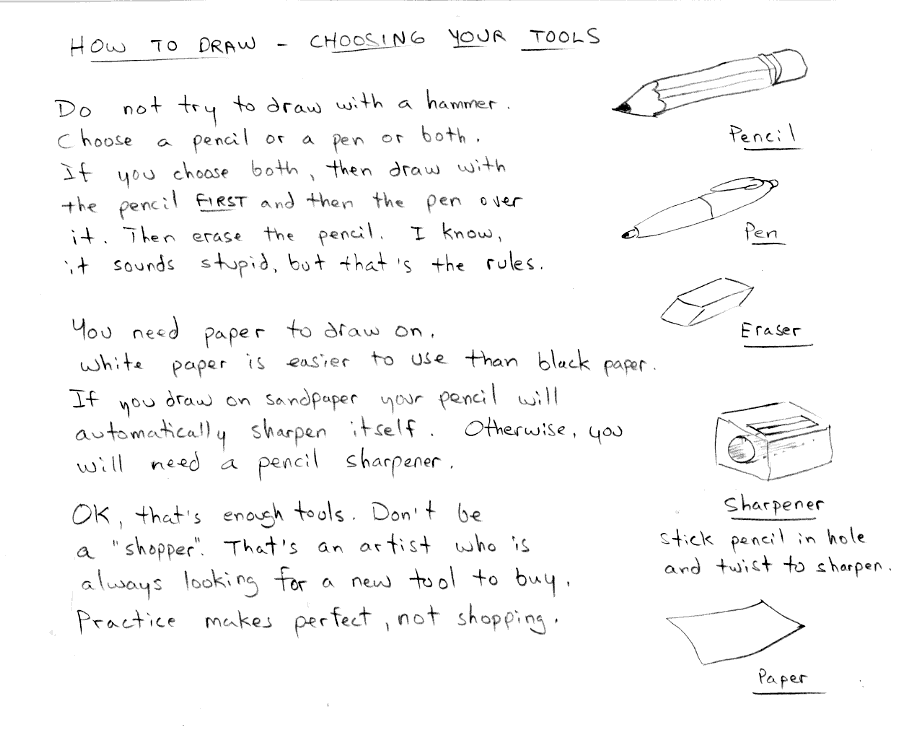 HOW TO DRAW - CHOOSING YOUR TOOLS
Do not try to draw with a hammer.
Choose a pencil or a pen or both.
If you choose both, then draw with
the pencil FIRST and then the pen over
it. Then erase the pencil. I know,
it sounds stupid, but that's the rules.
You need paper to draw on.
White paper is easier to use than black paper.
If you draw on sandpaper your pencil will
automatically sharpen itself. Otherwise, you
will need a pencil sharpener.
OK, that's enough tools. Don't be
a "shopper". That's an artist who is
always looking for a new tool to buy.
Practice makes perfect, not shopping.
Pencil
Pen
Eraser
Sharpener
stick pencil in hole
and twist to sharpen.
Paper